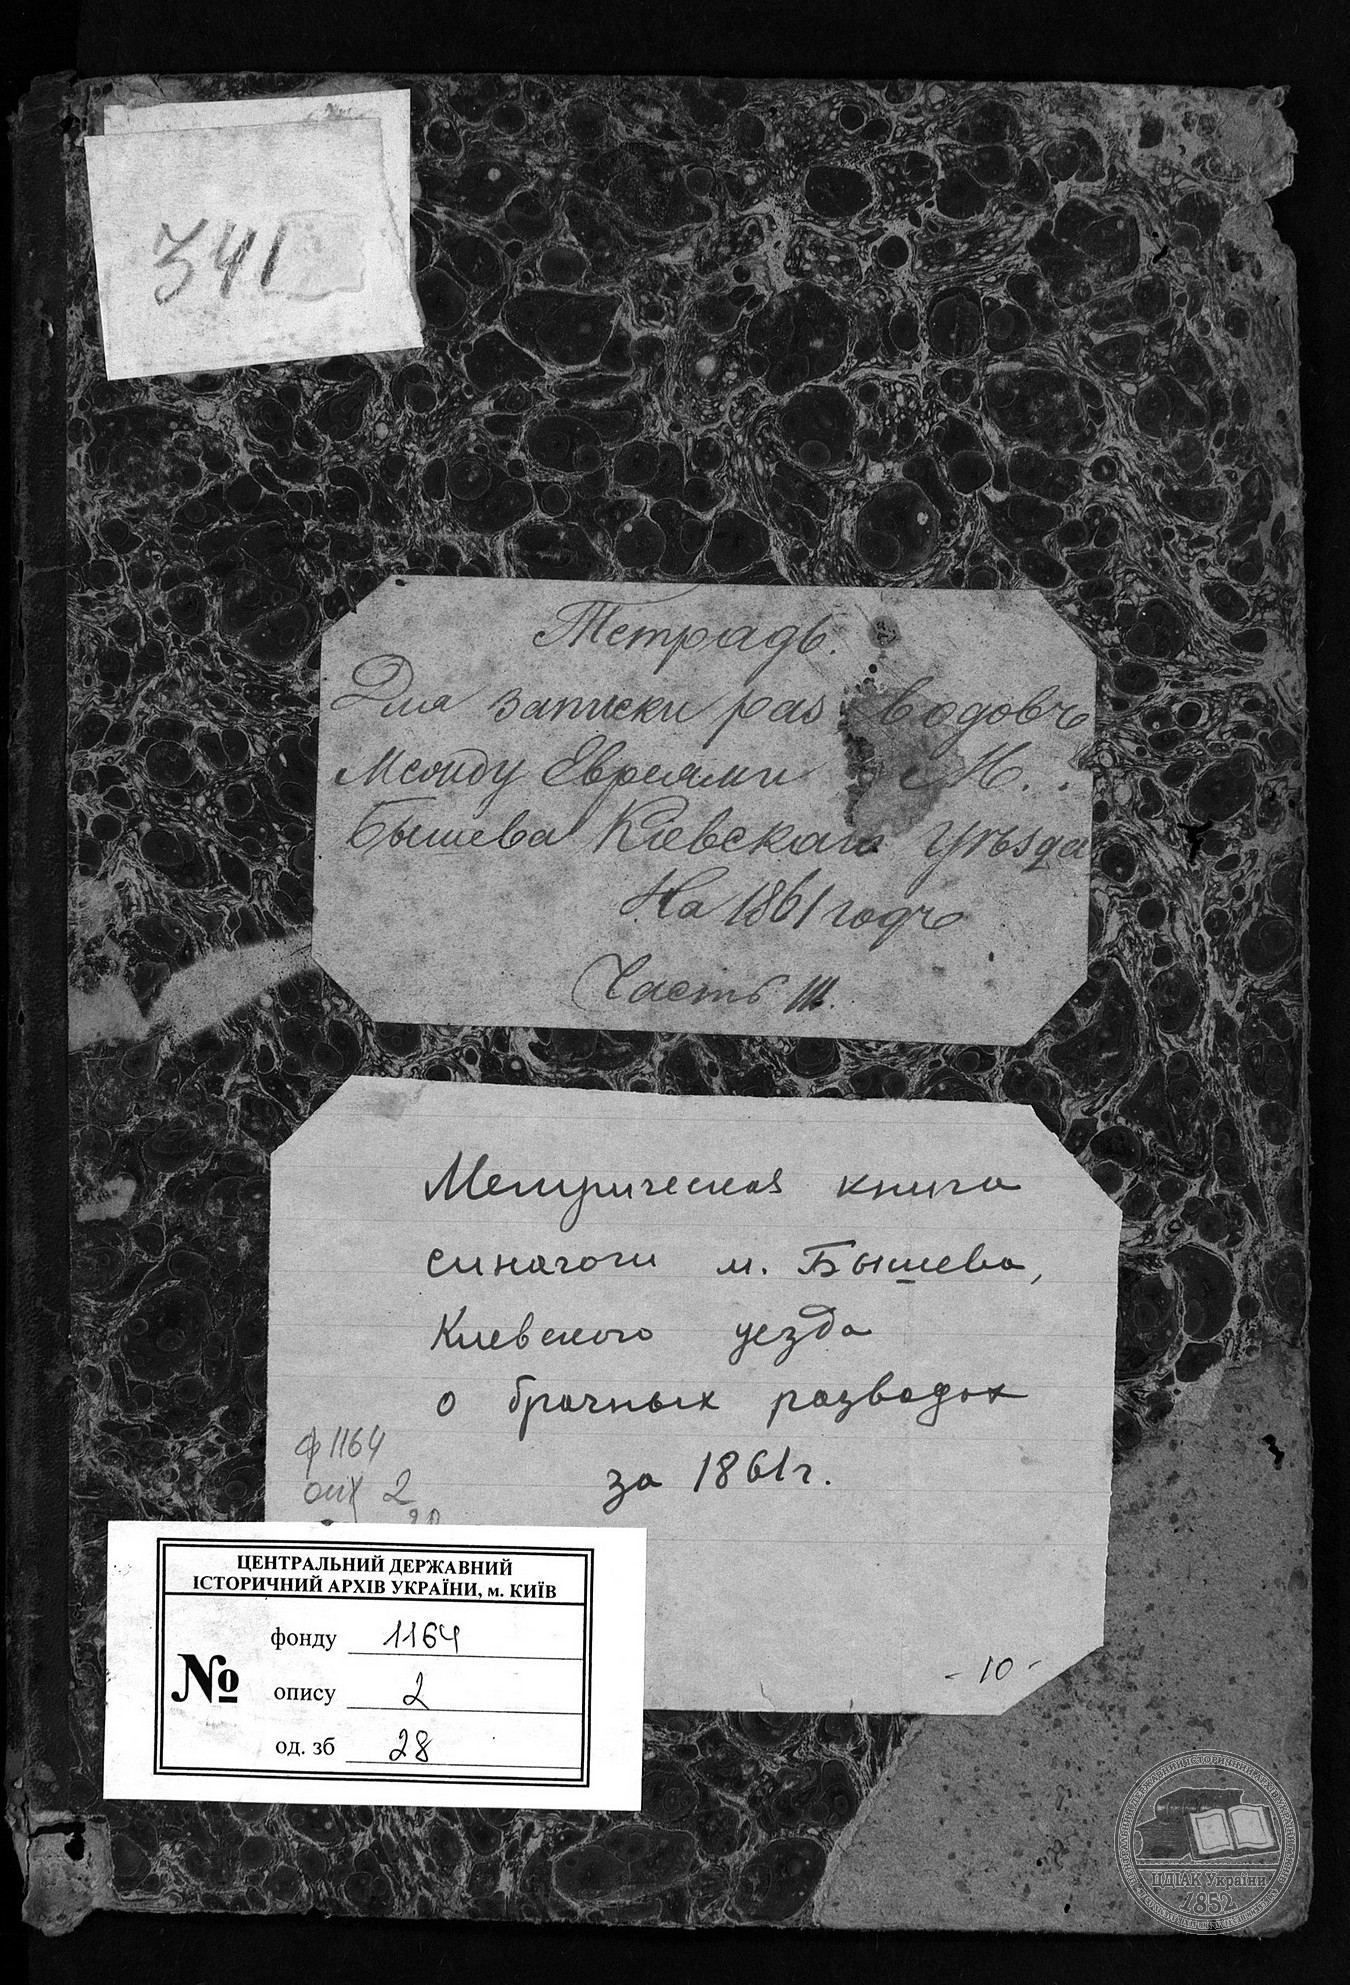 341
Тетрадь.
Для записки раз водовъ
Между Евреями М.
Бышева Кіевскаго Уѣзда
На 1861 годъ
Часть III.
Метрическая книга
синагоги м. Бышева,
Киевского уезда
о брачных разводах
за 1861 г.
ф 1164
оп 2
ЦЕНТРАЛЬНИЙ ДЕРЖАВНИЙ
ІСТОРИЧНИЙ АРХІВ УКРАЇНИ, м. КИЇВ
№
фонду 1164
опису 2
од. зб 28
- 10 -
ЦДІАК України
1852